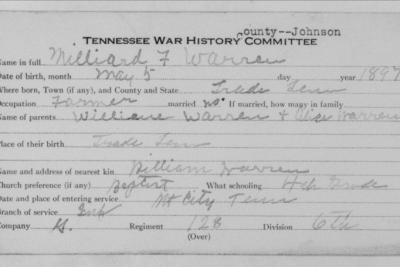 County--Johnson
TENNESSEE WAR HISTORY COMMITTEE
Name in full Milliard F Warren
Date of birth, month May 5 day year 1897
Where born, Town (if any), and County and State Trade Tenn
Occupation Farmer married no If married, how many in family
Name of parents William Warren & Alice Warren
Place of their birth Trade Tenn
Name and address of nearest kin William Warren
Church preference (if any) Baptist What schooling 4th Grade
Date and place of entering service Mt City Tenn
Branch of service Inf
Company G. Regiment 128 Division 6th
(Over)